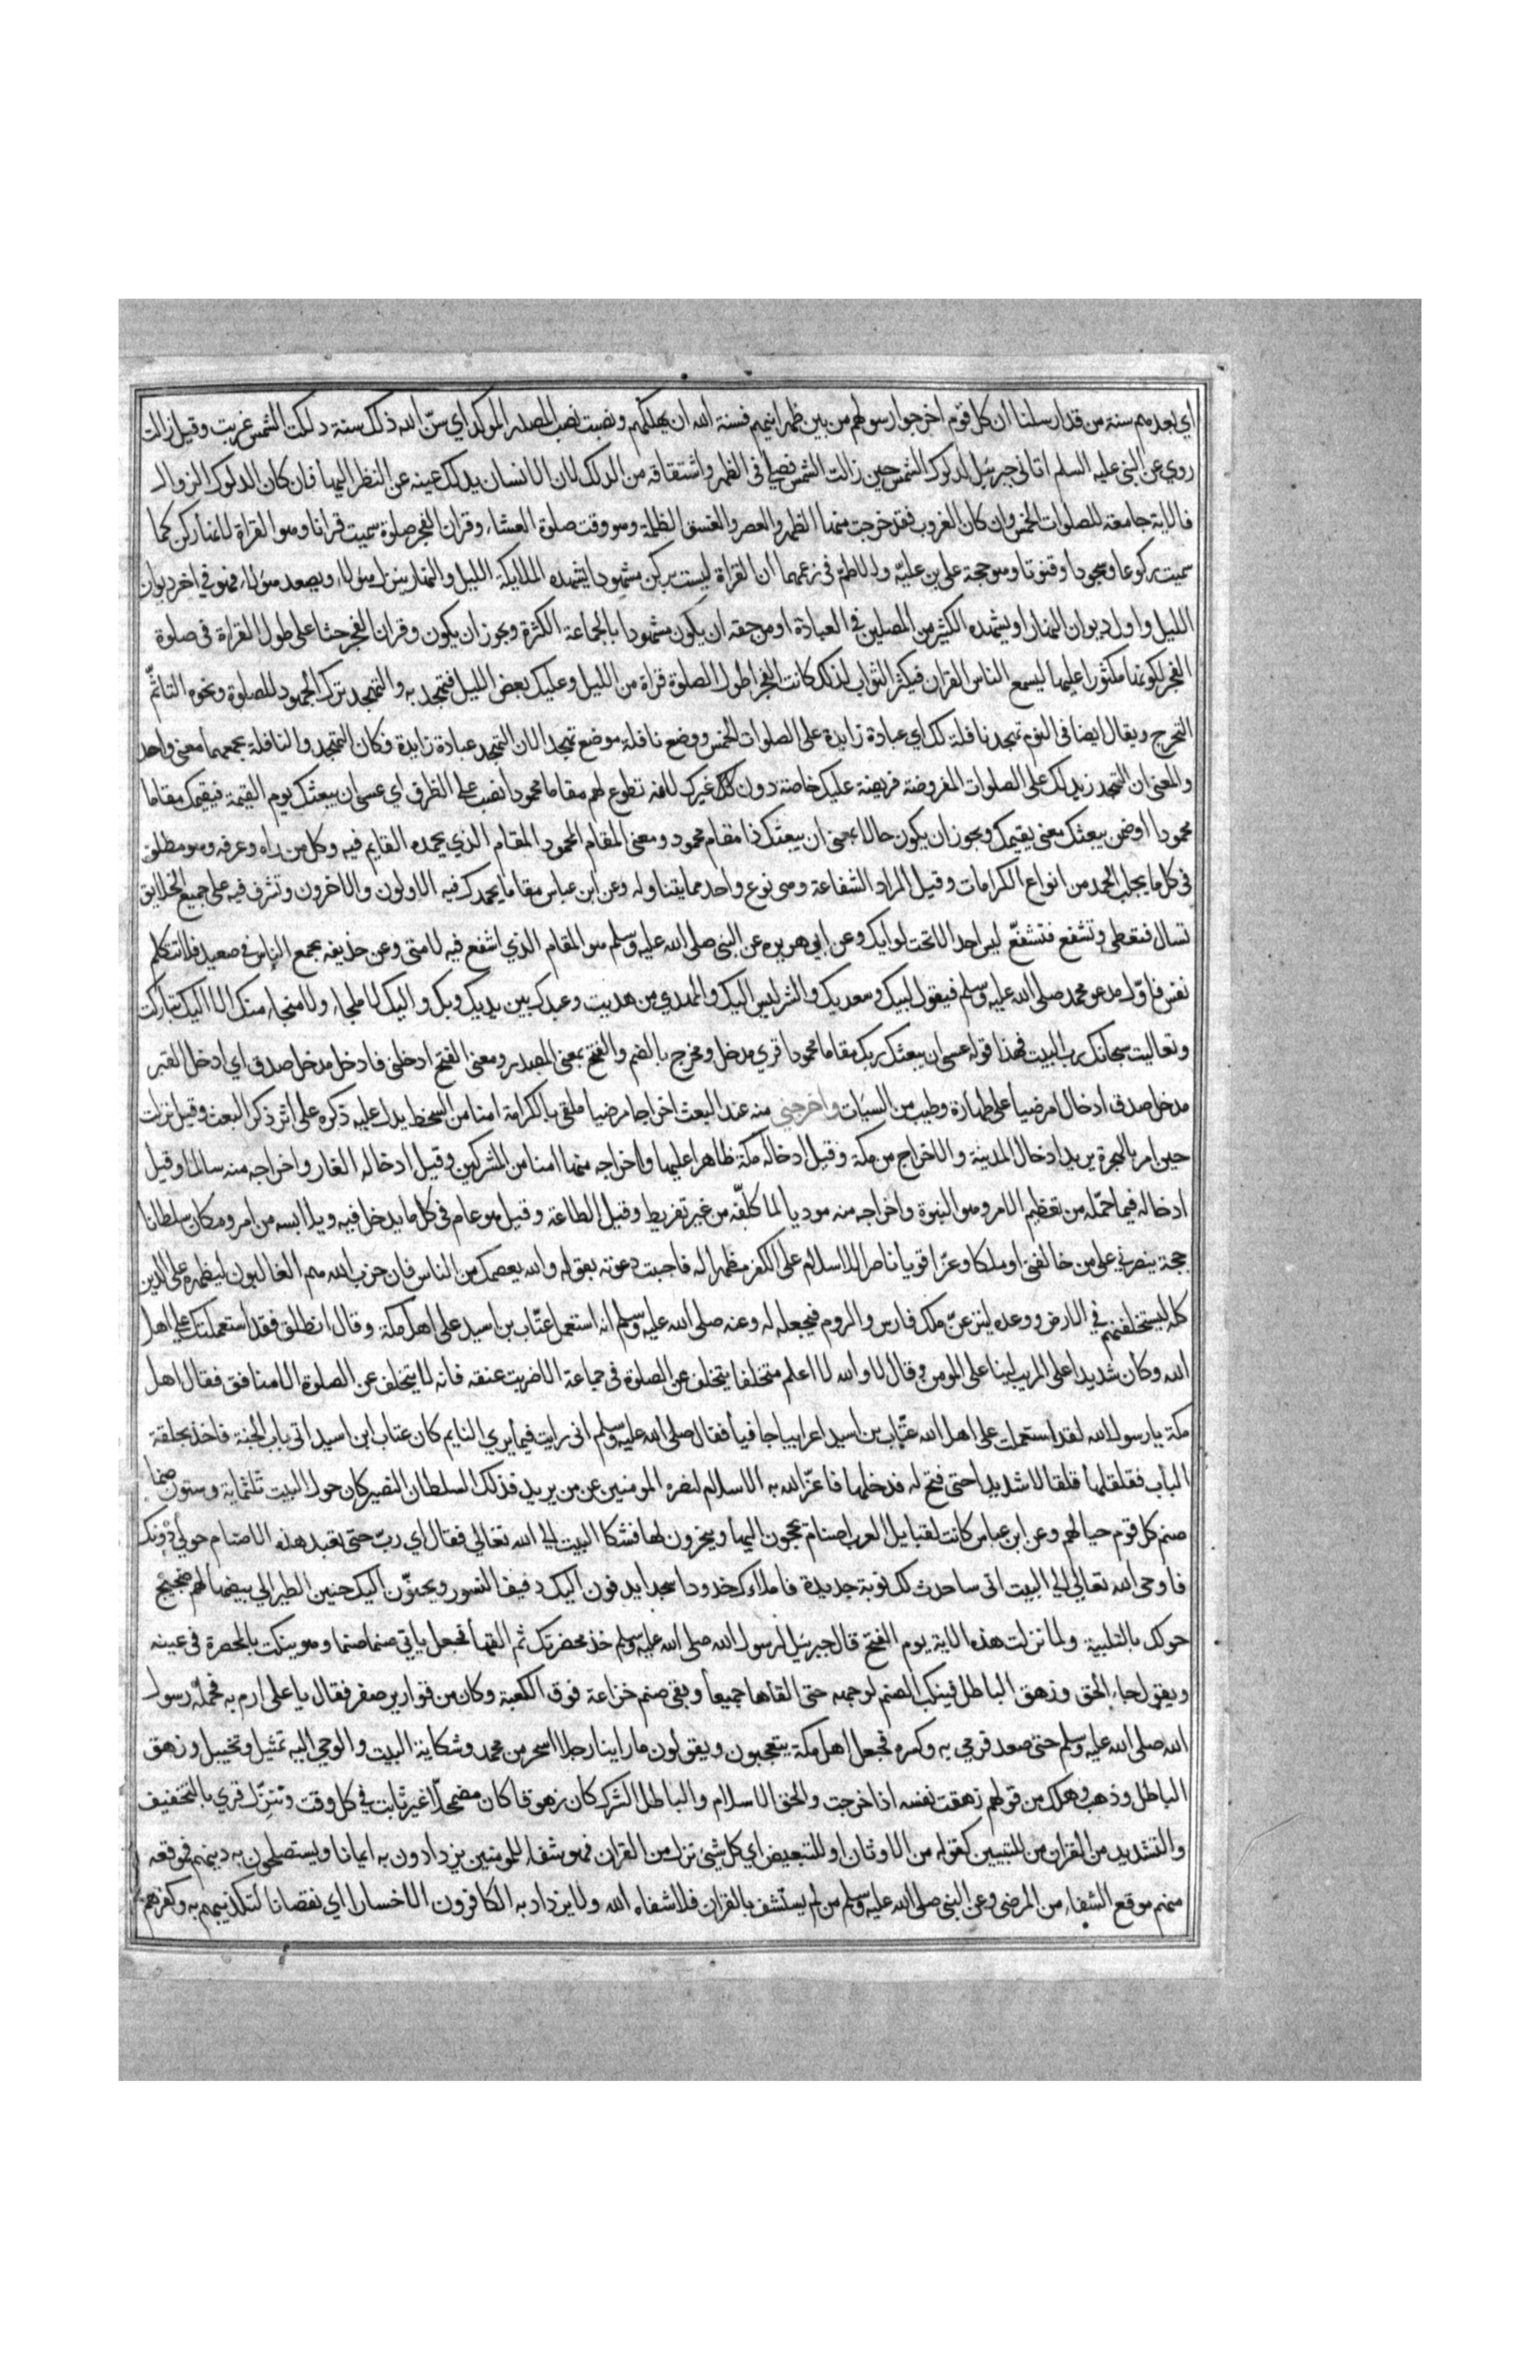 اي بعدهم سنة من قد ارسلنا ان كل قوم اخرجوا رسولهم من بين ظهرانيهم فسنة الله ان يهلكهم ونصبت نصب المصدر الموكد اي سنّ الله ذلك سنة دلكت الشمس غربت وقيل زالت
روي عن النبي عليه السلم اتاني جبريل لدلوك الشمس حين زالت الشمس فصلي في الظهر واشتقاقه من الدلك لان الانسان يدلك عينه عن النظر اليها فان كان الدلوك الزوال
فالاية جامعة للصلوات الخمس وان كان الغروب فقد خرجت منها الظهر والعصر والغسق الظلمة وهو وقت صلوة العشاء وقران الفجر صلوة سميت قرانا وهو القراة لانها ركن كما
سميت ركوعا وسجودا وقنوتا وهو حجة على بن عليّه والاصم في زعمهما ان القراة ليست بركن مشهودا يشهده الملايكة الليل والنهار ينزل هولاء ويصعد هولاء فهو في اخر ديوان
الليل واول ديوان النهار او يشهده الكثير من المصلين في العبادة او من حقه ان يكون مشهودا بالجماعة الكثرة ويجوز ان يكون وقران الفجر حثا على طول القراة في صلوة
الفجر لكونها مكثورا عليها ليسمع الناس القران فيكثر الثواب لذلك كانت الفجر اطول الصلوة قراة من الليل وعليك بعض الليل فتهجد به والتهجد ترك الهجود للصلوة ونحوه التاثّم
التحرج ويقال ايضا في النوم تهجد نافلة لك اي عبادة زايدة على الصلوات الخمس ووضع نافلة موضع تهجدا لان التهجد عبادة زايدة فكان التهجد والنافلة يجمعهما معنى واحد
والمعنى ان التهجد زيد لك على الصلوات المفروضة فريضة عليك خاصة دون غيرك لانه تطوع لهم مقاما محمودا نصب على الظرف اي عسى ان يبعثك يوم القيمة فيقيمك مقاما
محمودا او ضمن يبعثك معنى يقيمك ويجوز ان يكون حالا بمعنى ان يبعثك ذا مقام محمود ومعنى المقام المحمود المقام الذي يحمده القايم فيه وكل من راه وعرفه وهو مطلق
في كل ما يجلب الحمد من انواع الكرامات وقيل المراد الشفاعة وهي نوع واحد مما يتناوله وعن ابن عباس مقاما يحمدك فيه الاولون والاخرون وتشرف فيه على جميع الخلايق
تسال فتعطى وتشفع فتشفّع ليس احد الا تحت لوايك وعن ابي هريره عن النبي صلى الله عليه وسلم هو المقام الذي اشفع فيه لامتي وعن حذيفه يجمع الناس في صعيد فلا تتكلم
نفس فاوّل مدعو محمد صلى الله عليه وسلم فيقول لبيك وسعديك والشر ليس اليك والمهدي من هديت وعبدك بين يديك وبك واليك لا ملجاء ولا منجاء منك الا اليك تباركت
وتعاليت سبحانك رب البيت فهذا قوله عسى ان يبعثك ربك مقاما محمودا قري مدخل ومخرج بالضم والفتح بمعنى المصدر ومعنى الفتح ادخلني فادخل مدخل صدق اي ادخل القبر
مدخل صدق ادخالا مرضيا على طهارة وطيب من السيات واخرجني منه عند البعث اخراجا مرضيا ملقى بالكرامة امنا من السخط يدل عليه ذكره على اثر ذكر البعث وقيل نزلت
حين امر بالهجرة يريد ادخال المدينة والاخراج من مكة وقيل ادخاله مكة ظاهرا عليها واخراجه منها امنا من المشركين وقيل ادخاله الغار واخراجه منه سالما وقيل
ادخاله فيما احمّله من تعظيم الامر وهو النبوة واخراجه منه موديا لما كلّفه من غير تفريط وقيل الطاعة وقيل هو عام في كل ما يدخل فيه ويلابسه من امر ومكان سلطانا
حجة ينصرني على من خالفني او ملكا وعزّا قويا ناصرا للاسلام على الكفر مظهرا له فاجبت دعوته بقوله والله يعصمك من الناس فان حزب الله هم الغالبون ليظهره على الدين
كله ليستخلفنهم في الارض ووعده لينزعنّ ملك فارس والروم فيجعله له وعنه صلى الله عليه وسلم انه استعمل عتّاب بن اسيد على اهل مكة وقال انطلق فقد استعملتك على اهل
الله وكان شديدا على المريب لينا على المومن وقال لا والله لا اعلم متخلفا يتخلف عن الصلوة في جماعة الا ضربت عنقه فانه لا يتخلف عن الصلوة الا منافق فقال اهل
مكة يا رسول الله لقد استعملت على اهل الله عتّاب بن اسيد اعرابيا جافيا فقال صلى الله عليه وسلم اني رايت فيما يري النايم كان عتاب ابن اسيد اتى باب الجنة فاخذ بحلقة
الباب فقلقلها قلقالا شديدا حتى فتح له فدخلها فاعزّ الله به الاسلام لنصره المومنين عن من يريد فذلك السلطان النصير كان حول البيت ثلثماية وستون صنما
صنم كل قوم حيالهم وعن ابن عباس كانت لقبايل العرب اصنام يحجون اليها ويخرون لها فشكا البيت الى الله تعالي فقال اي ربّ حتى تعبد هذه الاصنام حولي دونك
فاوحى الله تعالي الى البيت اني ساحدث لك نوبة جديدة فاملاءك خدودا سجدا يدفون اليك دفيف النسور ويحنّون اليك حنين الطير الى بيضها لهم عجيج
حولك بالتلبية ولما نزلت هذه الاية يوم الفتح قال جبريل لرسول الله صلى الله عليه وسلم خذ مخصرتك ثم القها فجعل ياتي صنما صنما وهو ينكت بالمخصرة في عينه
ويقول جاء الحق وزهق الباطل فينكب الصنم لوجهه حتى القاها جميعا وبقي صنم خزاعة فوق الكعبة وكان من قوارير صفر فقال يا على ارم به فحمله رسول
الله صلى الله عليه وسلم حتى صعد فرمي به وكسره فجعل اهل مكة يتعجبون ويقولون ما راينا رجلا اسحر من محمد وشكاية البيت والوحي اليه تمثيل وتخييل وزهق
الباطل وذهب وهلك من قولهم زهقت نفسه اذا خرجت والحق الاسلام والباطل الشرك كان زهوقا كان مضمحلّا غير ثابت في كل وقت وننزّل قري بالتخفيف
والتشديد من القران من للتبيين كقوله من الاوثان او للتبعيض اي كل شيئ نزل من القران فهو شفاء للمومنين يزدادون به ايمانا ويستصلحون به دينهم فموقعه
منهم موقع الشفاء من المرضى وعن النبي صلى الله عليه وسلم من لم يستشف بالقران فلا شفاه الله ولا يزداد به الكافرون الا خسارا اي نقصانا لتكذيبهم به وكفرهم